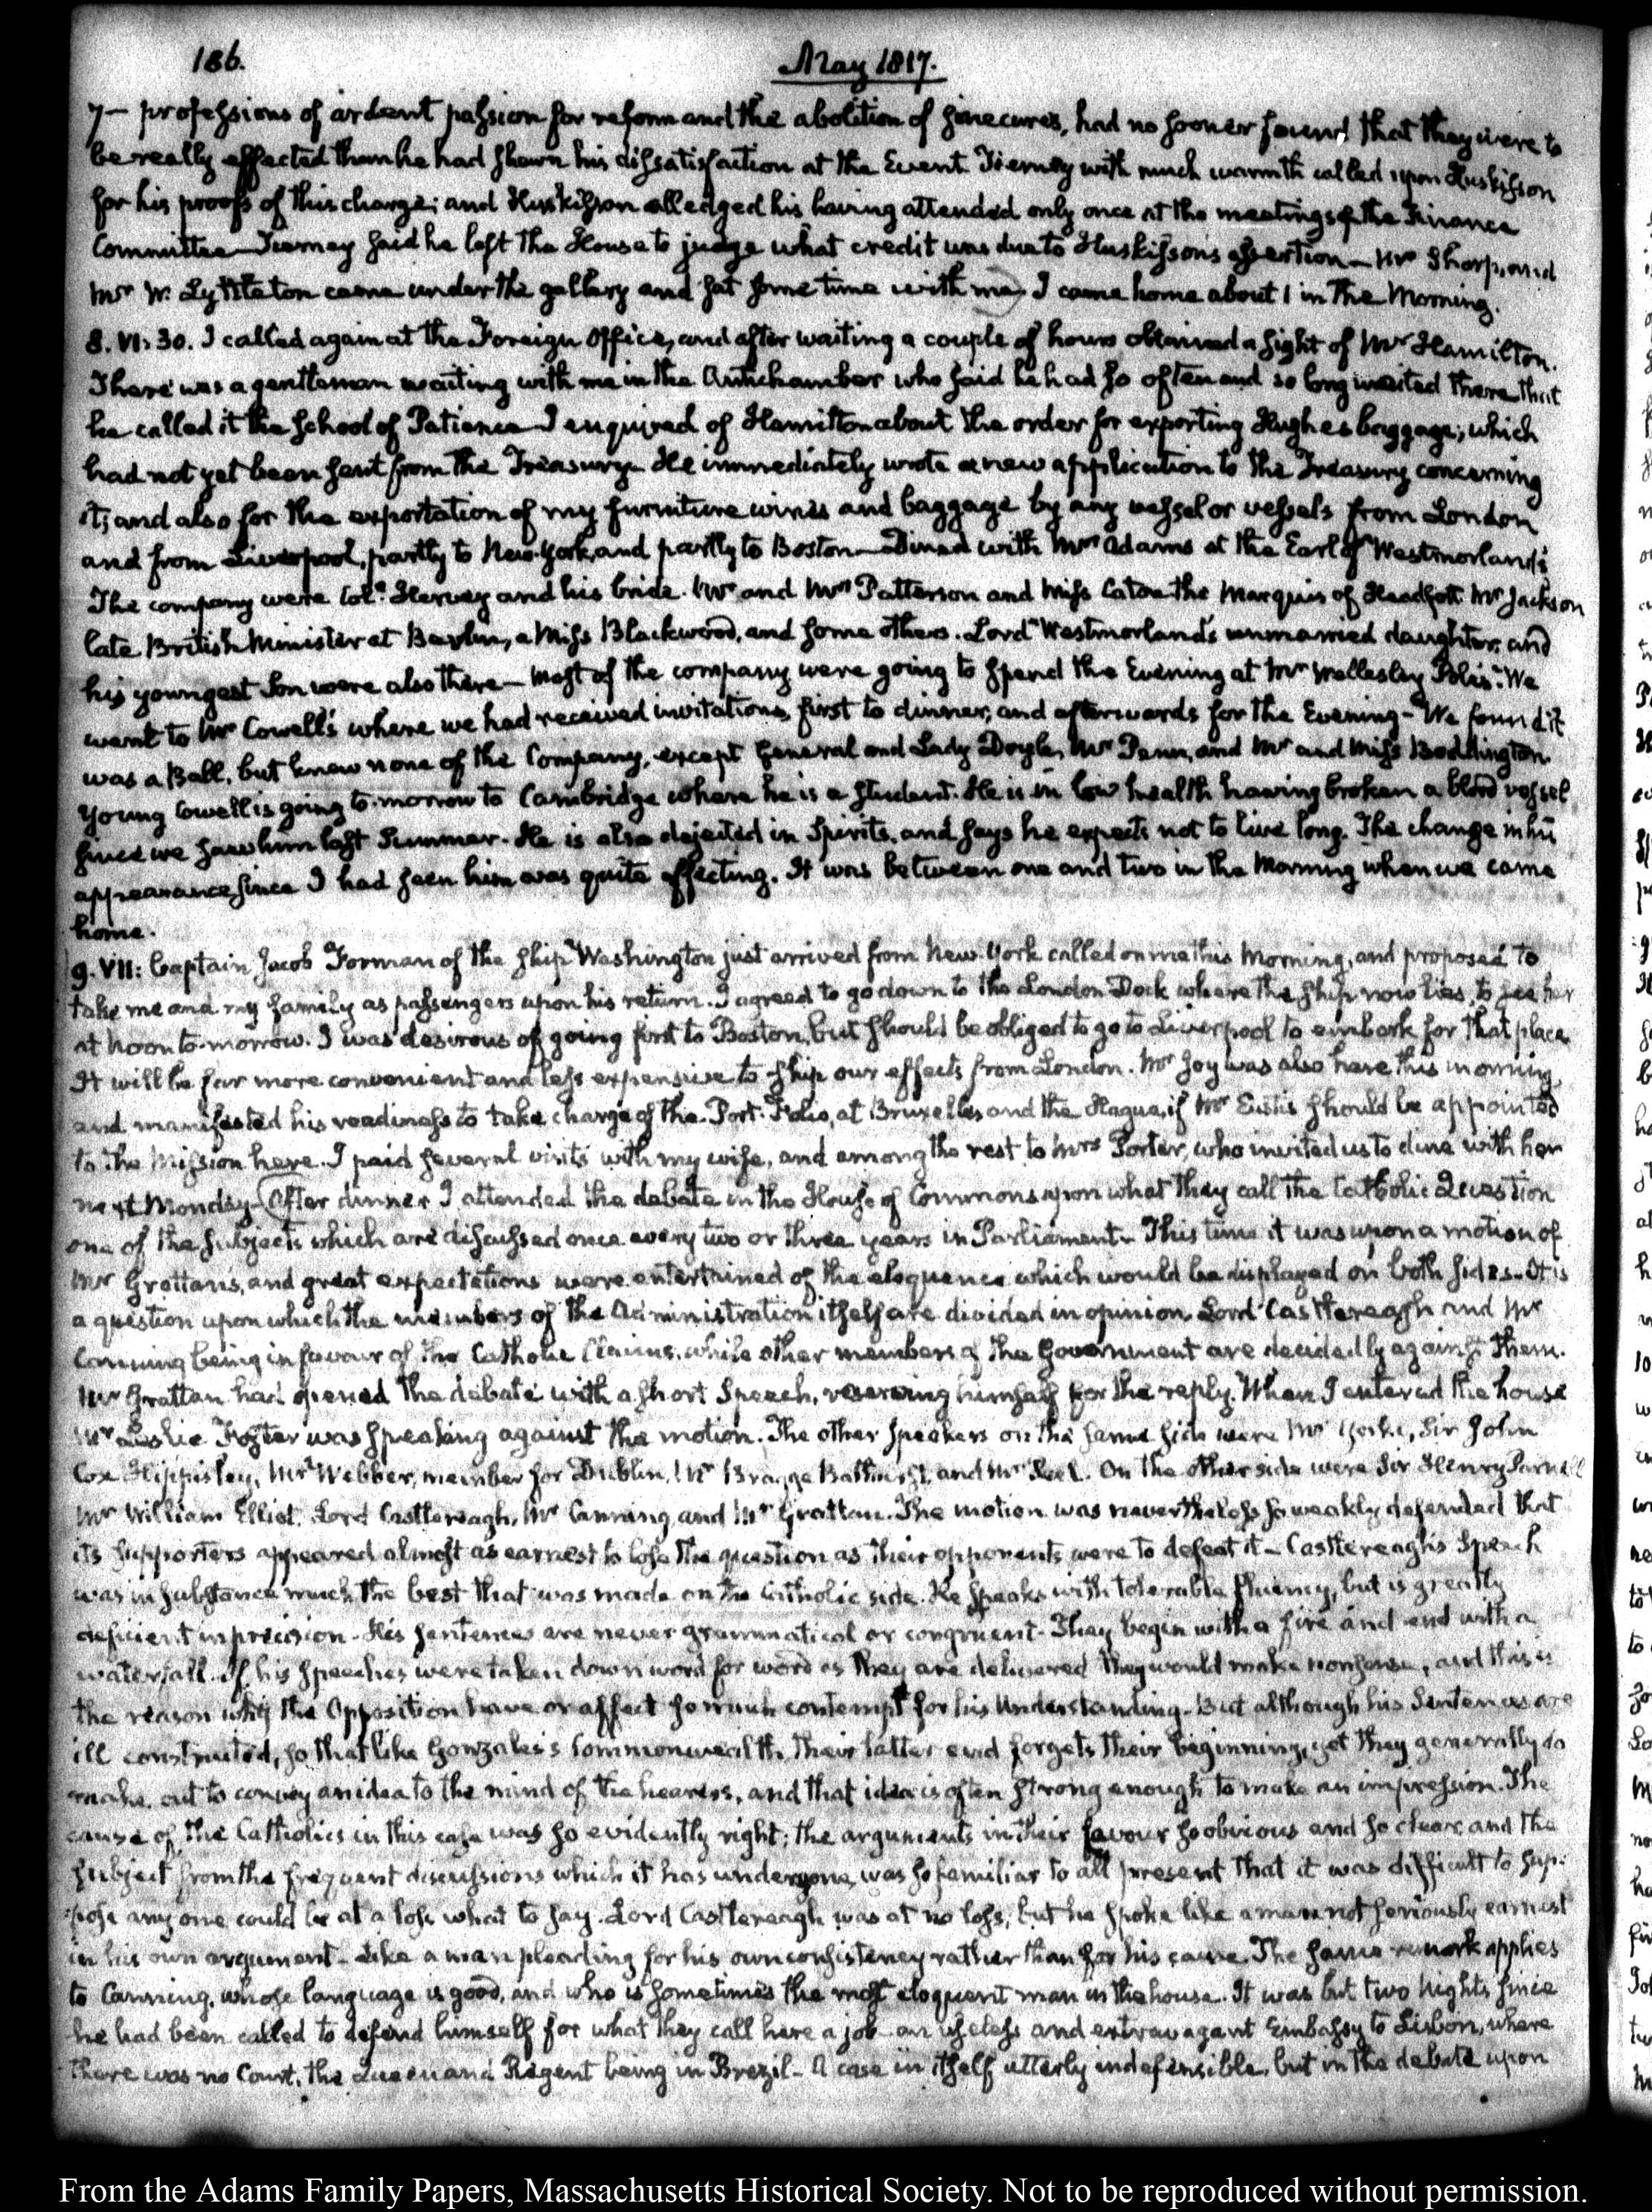 186.
May 1817.
7— professions of ardent passion for reform and the abolition of sinecures, had no sooner found that they were to
be really effected than he had shewn his dissatisfaction at the Event. Tierney with much warmth called upon Huskisson
for his proofs of this charge; and Huskisson alledged his having attended only once at the meetings of the Finance
Committee— Tierney said he left the House to judge what credit was due to Huskisson's assertion— Mr Sharp, and
Mr W. Lyttleton came under the gallery and sat some time with me) I came home about 1 in the Morning.
8. VI: 30. I called again at the Foreign Office, and after waiting a couple of hours obtained a sight of Mr Hamilton.
There was a gentleman waiting with me in the Antichamber who said he had so often and so long waited there that
he called it the School of Patience— I enquired of Hamilton about the order for exporting Hughes baggage; which
had not yet been sent from the Treasury. He immediately wrote a new application to the Treasury concerning
it; and also for the exportation of my furniture wines and baggage by any vessel or vessels from London
and from Liverpool, partly to New-York, and partly to Boston— Dined with Mrs Adams at the Earl of Westmorland's
The company were Coll. Hervey and his bride. Mr and Mrs Patterson and Miss Caton the Marquis of Headfort Mr Jackson
late British Minister at Berlin, a Miss Blackwood, and some others. Lord Westmorland's unmarried daughter, and
his youngest Son were also there— Most of the company were going to spend the Evening at Mr Wellesley Pole's. We
went to Mr Cowell's where we had received invitations, first to dinner, and afterwards for the Evening— We found it
was a Ball, but knew none of the Company, except General and Lady Doyle, Mr Penn, and Mr and Miss Boddington.
Young Cowell is going to-morrow to Cambridge where he is a Student. He is in low health having broken a blood vessel
since we saw him last Summer. He is also dejected in Spirits, and says he expects not to live long. The change in his
appearance since I had seen him was quite affecting. It was between one and two in the Morning when we came
home.
9. VII: Captain Jacob Forman of the Ship Washington just arrived from New-York called on me this Morning, and proposed to
take me and my family as passengers upon his return. I agreed to go down to the London Dock where the ship now lies, to see her
at Noon to-morrow. I was desirous of going first to Boston, but should be obliged to go to Liverpool to embark for that place.
It will be far more convenient and less expensive to ship our effects from London. Mr Joy was also here this morning,
and manifested his readiness to take charge of the Port-Folio, at Bruxelles and the Hague, if Mr Eustis should be appointed
to the Mission here. I paid several visits with my wife, and among the rest to Mrs Porter, who invited us to dine with her
next Monday— (After dinner I attended the debate in the House of Commons upon what they call the Catholic Question
one of the subjects which are discussed once every two or three years in Parliament— This time it was upon a motion of
Mr Grattan's, and great expectations were entertained of the eloquence which would be displayed on both sides— It is
a question upon which the members of the Administration itself are divided in opinion. Lord Castlereagh and Mr
Canning being in favour of the Catholic Claims, while other members of the Government are decidedly against them.
Mr Grattan had opened the debate with a short Speech, reserving himself for the reply. When I entered the house
Mr Leslie Foster was speaking against the motion. The other speakers on the same side were Mr Yorke, Sir John
Cox Hippisley, Mr Webber, member for Dublin, Mr Bragge Bathurst, and Mr Peel. On the other side were Sir Henry Parnell
Mr William Elliot, Lord Castlereagh, Mr Canning and Mr Grattan. The motion was nevertheless so weakly defended that
its supporters appeared almost as earnest to lose the question as their opponents were to defeat it— Castlereagh's Speech
was in substance much the best that was made on the Catholic side. He speaks with tolerable fluency, but is greatly
deficient in precision— His sentences are never grammatical or congruent— They begin with a fire and end with a
waterfall. If his speeches were taken down word for word as they are delivered they would make nonsense, and this is
the reason why the Opposition have or affect so much contempt for his Understanding— But although his Sentences are
ill constructed, so that like Gonzales's Commonwealth, their latter end forgets their beginning, yet they generally do
make out to convey an idea to the mind of the hearers, and that idea is often strong enough to make an impression. The
cause of the Catholics in this case was so evidently right; the arguments in their favour so obvious and so clear, and the
subject from the frequent discussions which it has undergone, was so familiar to all present that it was difficult to sup-
:pose any one could be at a loss what to say. Lord Castlereagh was at no loss, but he spoke like a man not seriously earnest
in his own argument— Like a man pleading for his own consistency rather than for his cause. The same remark applies
to Canning, whose language is good, and who is sometimes the most eloquent man in the house. It was but two nights since
he had been called to defend himself for what they call here a job— an useless and extravagant Embassy to Lisbon, where
there was no Court, the Queen and Regent being in Brezil— A case in itself utterly indefensible, but in the debate upon
From the Adams Family Papers, Massachusetts Historical Society. Not to be reproduced without permission.